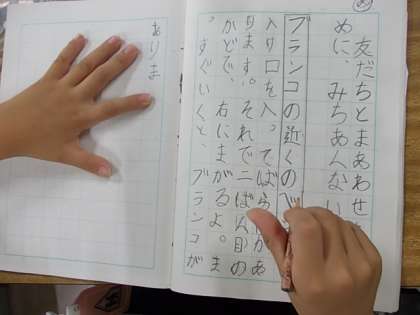 友だちとまあわせ
めに、みちあんない
ブランコの近くのべ
入り口を入。てばら
ります。それで二ばん目の
かどで、右にまがるよ。ま
。すぐいくと、ブランコが
ありま